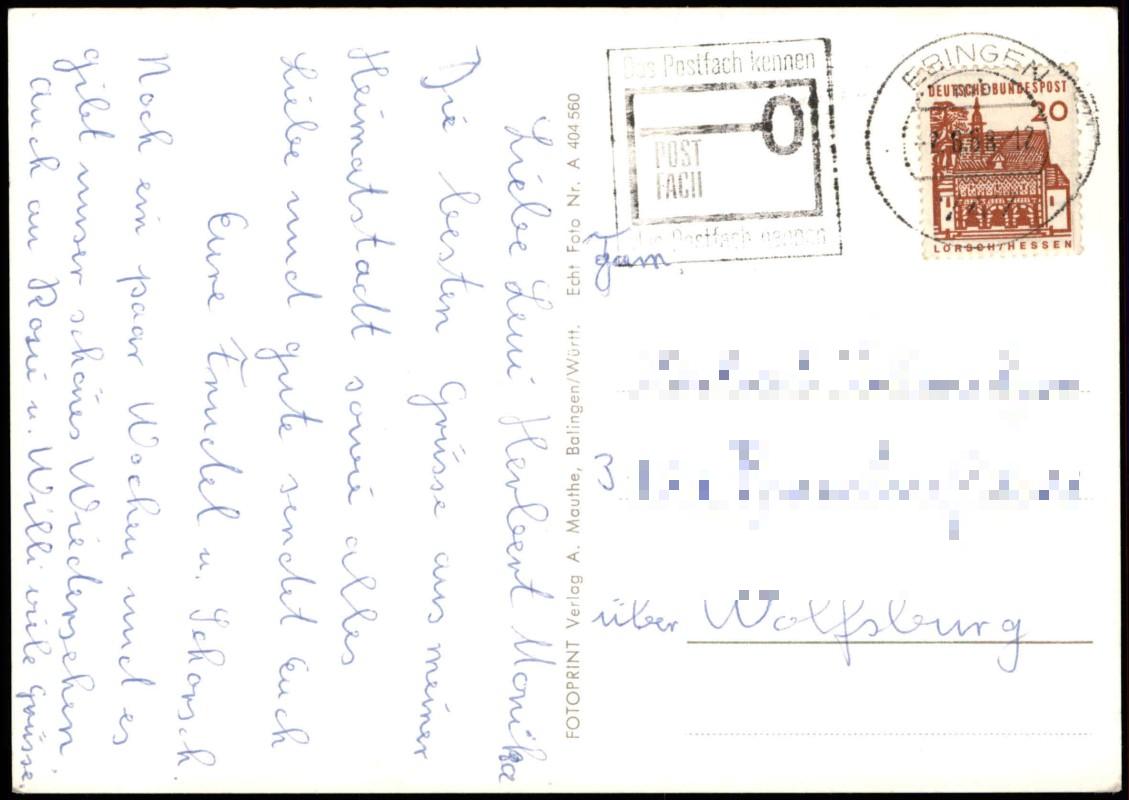 Liebe Leni Herbert Monika
Die besten Grüsse aus meiner
Heimatstadt sowie alles
Liebe und gute sendet Euch
Eure Trudel u. Schorsch.
Noch ein paar Wochen und es
gibt unser schönes Wiedersehen
auch an Rosi u. Willi viele grüsse.
FOTOPRINT Verlag A. Mauthe, Balingen/Württ. Echt Foto Nr. A 404 560
Das Postfach kennen
POST
FACH
das Postfach nennen
EBINGEN
DEUTSCHE BUNDESPOST
20
LORSCH/HESSEN
Fam.
3
über Wolfsburg